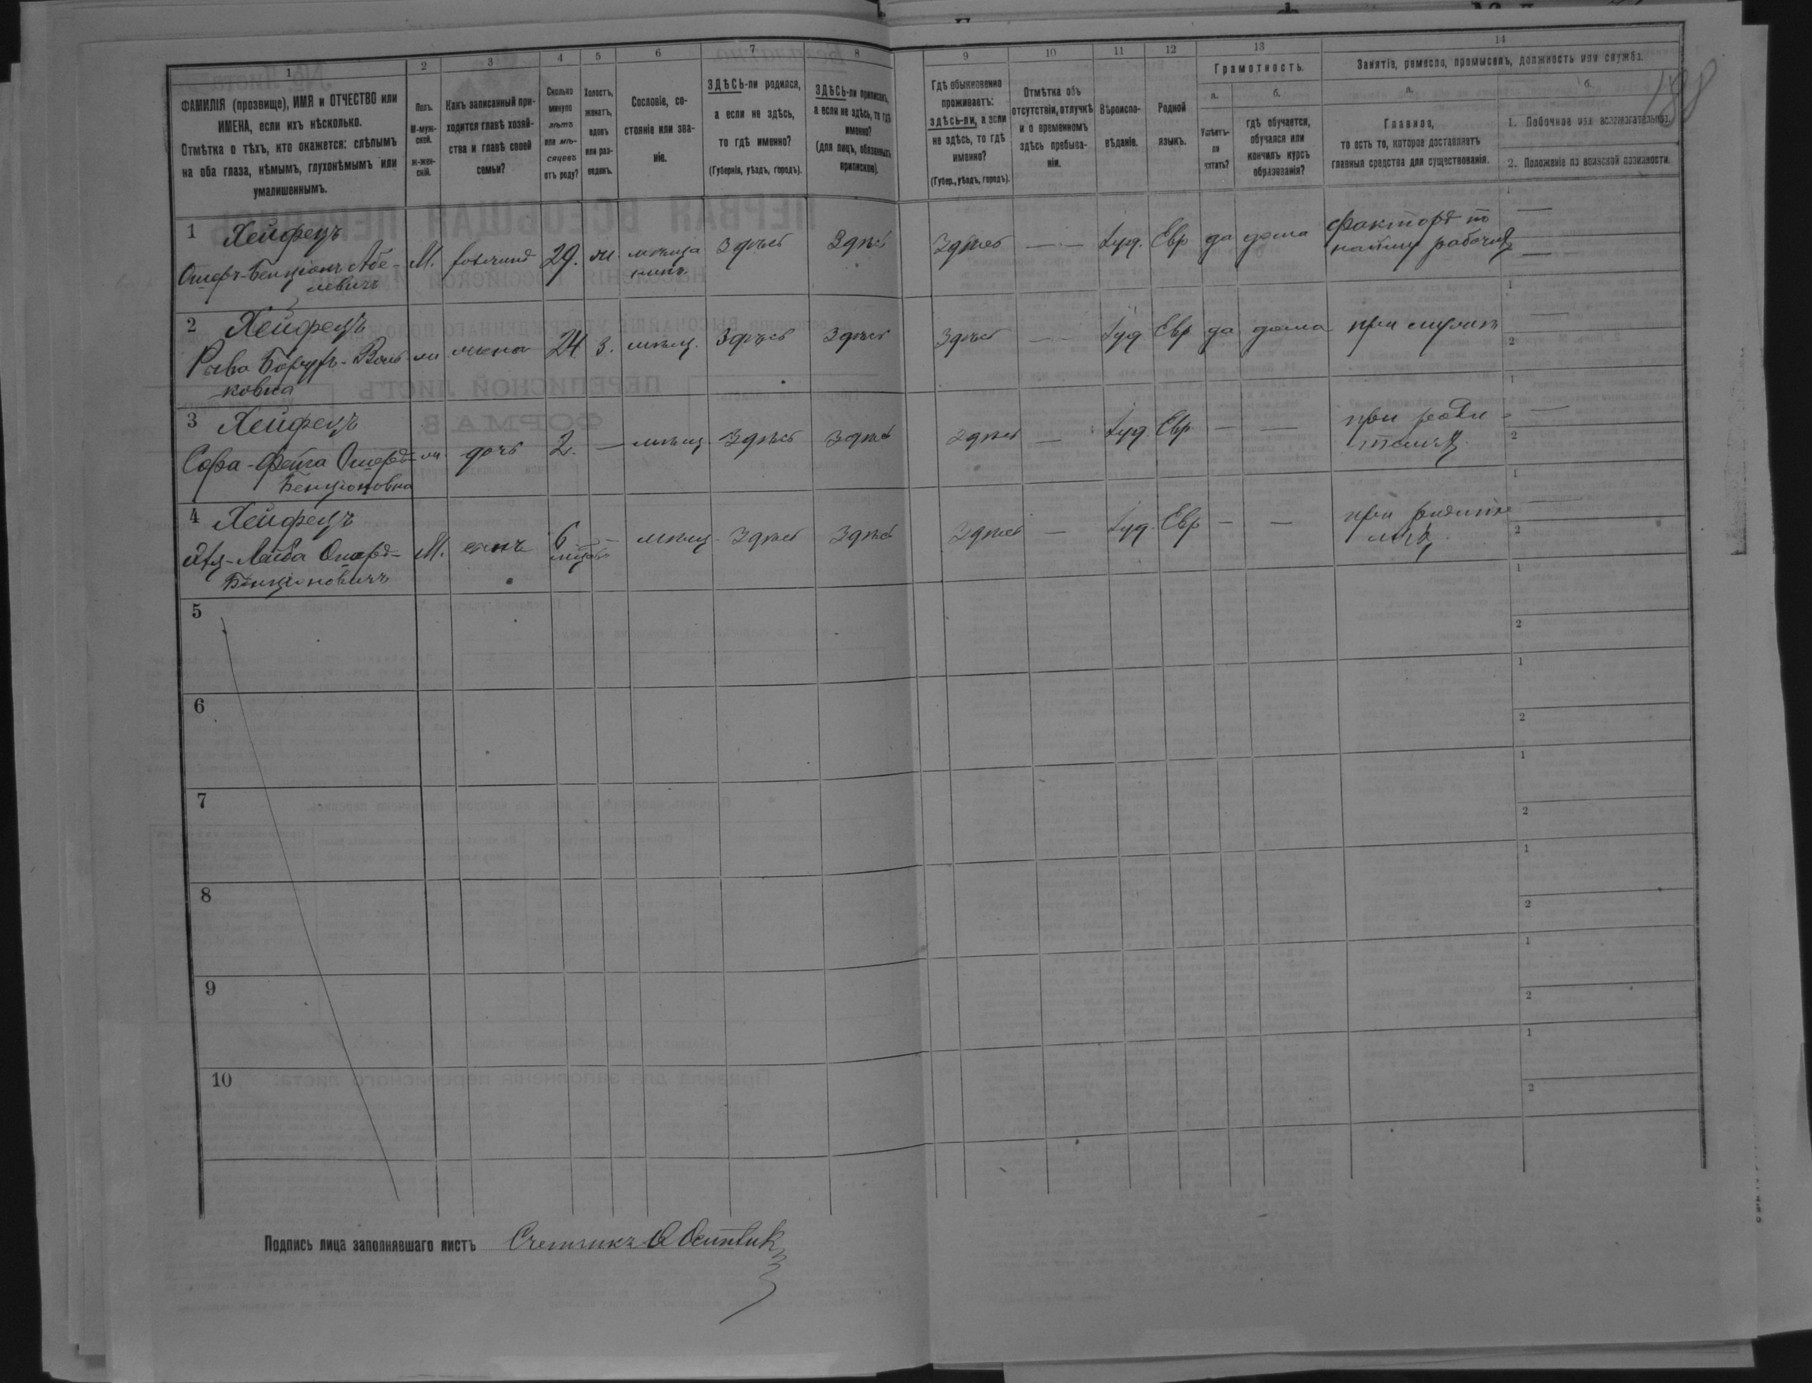 188
1 2 3 4 5 6 7 8 9 10 11 12 13 14
ФАМИЛІЯ (прозвище), ИМЯ и ОТЧЕСТВО или
ИМЕНА, если ихъ нѣсколько.
Отмѣтка о тѣхъ, кто окажется: слѣпымъ
на оба глаза, нѣмымъ, глухонѣмымъ или
умалишеннымъ.
Полъ.
М-муж-
ской.
Ж-жен-
скій.
Какъ записанный при-
ходится главѣ хозяй-
ства и главѣ своей
семьи?
Сколько
минуло
лѣтъ
или мѣ-
сяцевъ
отъ роду?
Холостъ,
женатъ,
вдовъ
или раз-
веденъ.
Сословіе, со-
стояніе или зва-
ніе.
ЗДѢСЬ-ли родился,
а если не здѣсь,
то гдѣ именно?
(Губернія, уѣздъ, городъ).
ЗДѢСЬ-ли приписанъ,
а если не здѣсь, то гдѣ
именно?
(для лицъ, обязанныхъ
припискою).
Гдѣ обыкновенно
проживаетъ:
здѣсь-ли, а если
не здѣсь, то гдѣ
именно?
(Губер., уѣздъ, городъ).
Отмѣтка объ
отсутствіи, отлучкѣ
и о временномъ
здѣсь пребыва-
ніи.
Вѣроиспо-
вѣданіе.
Родной
языкъ.
Грамотность.
а.
Умѣетъ-
ли
читать?
б.
гдѣ обучается,
обучался или
кончилъ курсъ
образованія?
Занятіе, ремесло, промыселъ, должность или служба.
а.
Главное,
то есть то, которое доставляетъ
главныя средства для существованія.
б.
1. Побочное или вспомогательное.
2. Положеніе по воинской повинности.
1 Хейфецъ
Ошеръ-Бенціонъ Абе-
левичъ
М. 29. ж. мѣща
нинъ здѣсь здѣсь здѣсь — — Іуд. Евр да дома факторъ по
найму рабочихъ
2 Хейфецъ
ж жена 24 З. мѣщ. здѣсь здѣсь здѣсь — — Іуд Евр да дома при мужѣ
ковна
3 Хейфецъ
Сора-Фейга Ошеръ-
Бенціоновна
ж дочь 2. — мѣщ. здѣсь здѣсь здѣсь — Іуд Евр — — при роди-
теляхъ
4 Хейфецъ
Лейба Ошеръ-
Бенціоновичъ
М. сынъ 6 мѣщ здѣсь здѣсь здѣсь — Іуд. Евр — — при родите
ляхъ
5
6
7
8
9
10
Подпись лица заполнявшаго листъ Счетчикъ